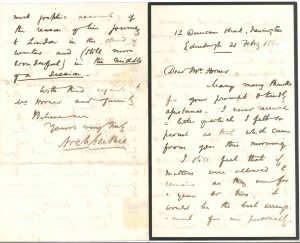 12 Duncan Street, Newington
Edinburgh 21 Feby
Dear Mr Horner
Many many thanks
for your prompt & kindly
assistance. I never received
a letter of which I felt so
proud as that which came
from you this morning
I still feel that if
matters were allowed to
remain as they are for
a year or two, it
would be the best arrange-
-ment for me personally
most graphic account of
the reason of his journey
to London in the dead of
winter and (still more
wonderful) in the middle
of a Session.
With kind regards to
Mrs Horner and family
Believe me
Yours very truly
Arch Geikie